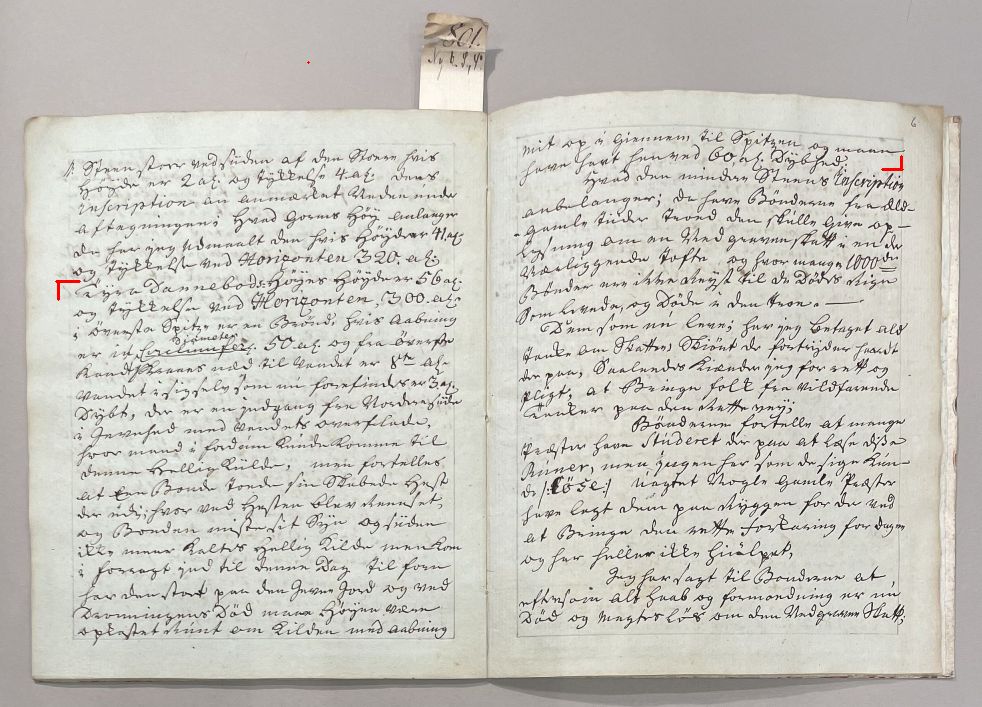 801.
Ny k. S. 4º
6
Steen störe ved süden af den Stoere hvis
Höyde er 2 al: og tykkelse 4 al: dens
Inscription an anmærket Neden under
aftegningen; Hvad Gorms Höy anlanger
da har jeg udmaalt den hvis Höyde er 41 al:
og Tÿkkelse ved Horizonten 320. al:
Tÿra Dannebods: Höyes Höyde er 56 al:
og tykkelse ved Horizonten, 300. al:
i Överste Spitze er en Brönd, hvis Aabning
Diameter
er i 50 al: og fra överste
Kand ned til Vandet er 8te al:
Vandet i sig selv som nu forefindes er 3 al:
Dÿbt, der er en indgang fra Norderesüde
i Jevnhed med Vandets overflade,
hvor mand i fordum Kunde Komme til
denne Hellig Külde, men fortelles
at Een Bonde Toede sin Skabede Hest
der üdi; hvor ved Hesten blev Reenset,
og Bonden miste sit Syn og süden
ikke meer Kaltes Hellig Kilde men Kom
i foragt ind til denne Dag til forn
har den staaet paa den Jevne Jord og ved
Dronningens Död maa Höyen være
opkastet rundt om Kilden med aabning
mit op i giennem til Spitzen og maae
have havt hen ved 60 al: Dÿbhed;
Hvad den mindre Steens Inscription
anbelanger; da have Bönderne fra Eld-
gamle tiider troed den skülle give op-
lysning om en Nedgraven skatt i en der
Værliggende Tofte og hvor mange 1000de
Bönder ere ikke Reyst til de Dödes Rige
Som levede, og Döde i den troe. —
Dem som nu lever; har jeg betaget ald
Tanke om Skatten, Skiönt de fortryder haardt
der paa, Saaleedes Kiender jeg for rett og
pligt, at Bringe folk fra vildfarende
Tanker paa den Rette vey;
Bönderne fortelle at mange
Præster have Studeret der paa at læse disse
Runer, men ingen har som de sige Kun-
de /: Löse :/ Uagtet Nogle Gamle Præster
have lagt dem paa Ryggen for de ved
at Bringe den rette Forklaring for dagen
og har heller ikke hiulpet,
Jeg har sagt til Bonderne at,
eftersom alt Haab og formoedning er nu
Död og Magtes Lös om den Nedgraven Skatt,